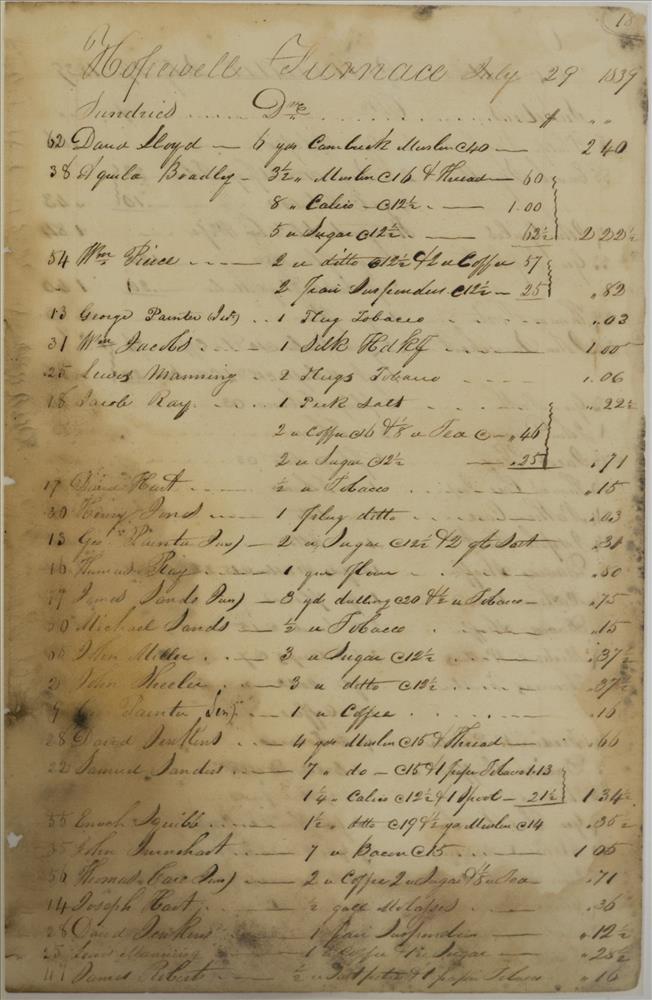 18
Hopewell Furnace July 29 1839
Sundries Drs $ " "
62 David Lloyd — 6 yds Cambrick Muslin C40 — 2 40
38 Aquila Bradley — 3½ " Muslin C16 & Thread — 60
8 " Calico — C12½ — 1.00
5 " Sugar C12½ — 62½ 2 22½
54 Wm — 2 " ditto C12½ & 2 " Coffee 57
2 pair Suspenders C12½ — 25 .82
13 George Painter 1 Plug Tobacco .03
31 Wm Jacobs 1 Silk Hdkf 1.00
25 Lewis Manning 2 Plugs Tobacco .06
18 Jacob Ray 1 Peck Salt " 22½
2 " Coffee C16 & ⅛ " Tea C — .46
2 " Sugar C12½ — .25 .71
17 Hart — ½ " Tobacco .15
30 Henry — 1 plug ditto .03
13 Geo Painter Jun) — 2 " Sugar C12½ & 2 qts Salt .31
16 Thomas — 1 qr flour .80
James Sands Jun) — 3 yds C20 & ½ " Tobacco — .75
Michael Sands — ½ " Tobacco .15
John Miller — 3 " Sugar C12½ .37½
John Wheeler — 3 " ditto C12½ .37½
Painter Senr — 1 " Coffee .16
28 David Jenkins — 4 yds Muslin C15 & Thread — .66
22 Samuel Sanders — 7 " do — C15 & 1 paper Tobacco 1.13
1¼ " Calico C12½ & 1 Spool — 21½ 1 34½
55 Enoch Squibb — 1½ " ditto C19 & ½ yd Muslin C14 .35½
35 John — 7 " Bacon C15 1 05
56 Thomas Care Jun) — 2 " Coffee 2 " Sugar & ⅛ " Tea .71
14 Joseph Hart — ½ gall Molasses .36
28 David Jenkins — 1 pair Suspenders .12½
25 Lewis Manning — Coffee & Sugar .28½
47 James Roberts — ½ " & 1 paper Tobacco " 16